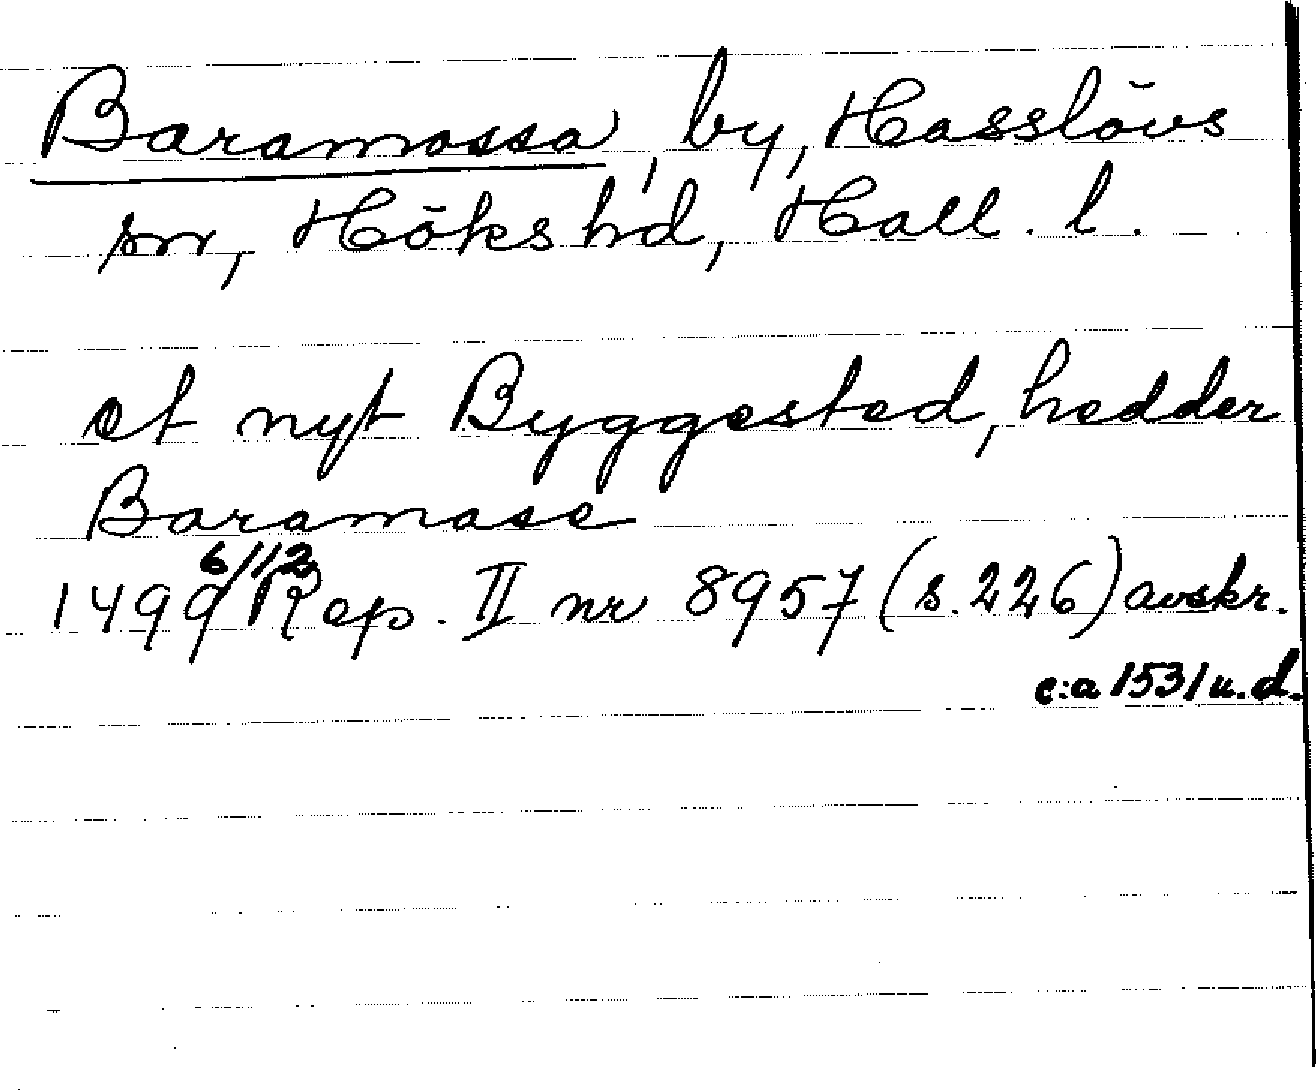 Baramossa, by, Hasslövs
sn, Höks hd, Hall. l.
et nyt Byggested, hedder
Baramase
1499 6/12 Rep. II nr 8957 (s. 226) avskr.
c:a 1531 u.d.